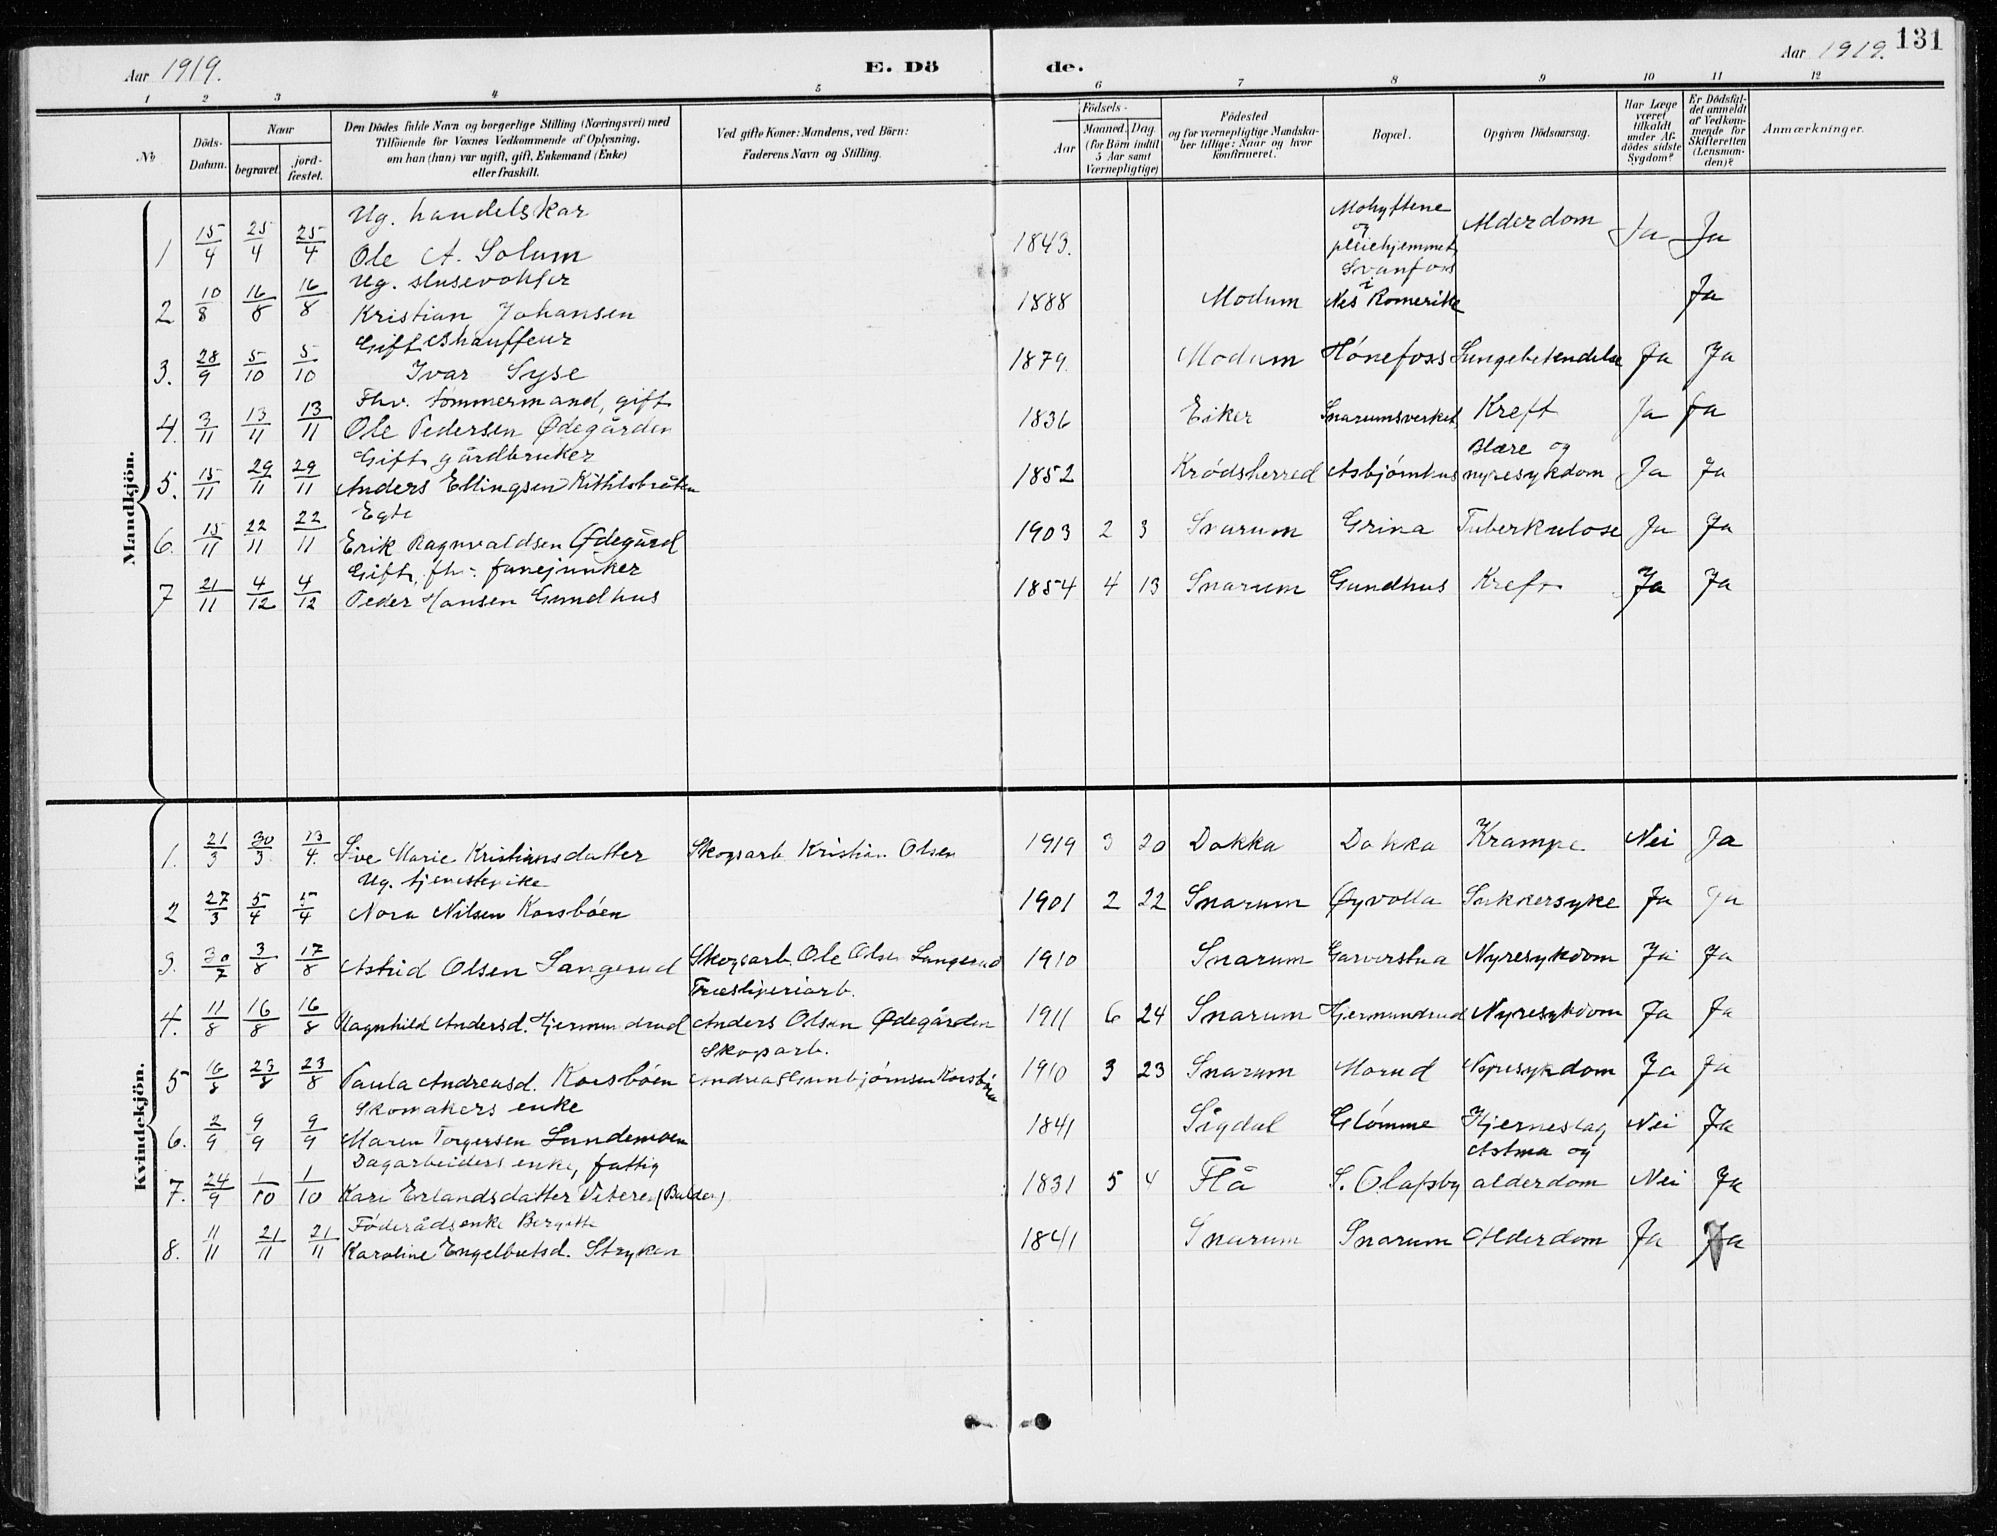 131
Aar 1919. E. Dö de. Aar 1919.
1 2 3 4 5 6 7 8 9 10 11 12
№ Döds-Datum. Naar begravet. jord-fæstet. Den Dödes fulde Navn og borgerlige Stilling (Næringsvei) med Tilföiende for Voxnes Vedkommende af Oplysning, om han (hun) var ugift, gift, Enkemand (Enke) eller fraskilt. Ved gifte Koner: Mandens, ved Börn: Faderens Navn og Stilling. Födsels- Aar Maaned. Dag. (for Börn indtil 5 Aar samt Værnepligtige) Födested og for værnepligtige Mandskaber tillige: Naar og hvor konfirmeret. Bopæl. Opgiven Dödsaarsag. Har Læge været tilkaldt under Afdödes sidste Sygdom? Er Dödsfaldet anmeldt af Vedkommende for Skifteretten (Lensmanden)? Anmærkninger.
Mandkjön.
Ug. handelskar
1 15/4 25/4 25/4 Ole A. Solum 1843. og pleiehjemmet Svanfoss Alderdom Ja Ja
Ug. slusevokter
2 10/8 16/8 16/8 Kristian Johansen 1888 Modum i Nes Romerike Ja
Gift Chauffeur
3. 28/9 5/10 5/10 Ivar Syse 1879. Modum Hønefoss Lungebetendelse Ja Ja
Fhv. tømmermand, gift
4. 3/11 13/11 13/11 Ole Pedersen Ødegården 1836 Eiker Snarumsverket Kreft Ja Ja
Gift gårdbruker Blære og
5. 15/11 29/11 29/11 Anders Ellingsen Kittilsbråten 1852 Krødsherred Asbjørnhus nyresykdom Ja Ja
Egte
6. 15/11 22/11 22/11 Erik Ragnvaldsen Ødegård 1903 2 3 Snarum Grina Tuberkulose Ja Ja
Gift, fh. fanejunker
7 21/11 4/12 4/12 Peder Hansen Gundhus 1854 4 13 Snarum Gundhus Kreft Ja Ja
Kvindekjön.
1. 21/3 30/3 13/4. Live Marie Kristiansdatter Skogsarb. Kristian Olsen 1919 3 20 Dokka Dokka Krampe Nei Ja
Ug. tjenestepike
2 27/3 5/4 5/4 Nora Nilsen Korsbøen 1901 2 22 Snarum Øyvolla Sukkersyke Ja Ja
3. 30/7 3/8 17/8 Astrid Olsen Langerud Skogsarb. Ole Olsen Langerud 1910 Snarum Garverstua Nyresykdom Ja Ja
Træsliperiarb.
4. 11/8 16/8 16/8 Ragnhild Andersd. Hjermundrud Anders Olsen Ødegården 1911 6 24 Snarum Hjermundrud Nyresykdom Ja Ja
Skogsarb.
5 16/8 23/8 23/8 Paula Andreasd. Korsbøen Andreas Gunbjørnsen Korsbøen 1910 3 23 Snarum Morud Nyresykdom Ja Ja
Skomakers enke
6. 2/9 9/9 9/9 Maren Torgersen Sandemoen 1841 Sigdal Glømme Hjerneslag Nei Ja
Dagarbeiders enke, fattig Astma og
7. 24/9 1/10 1/10 Kari Erlandsdatter Viteren 1831 5 4 Flå S. Olafsby alderdom Nei Ja
Føderådsenke Bergitte
8. 11/11 21/11 21/11 Karoline Engelbretsd. Stryken 1841 Snarum Snarum Alderdom Ja Ja